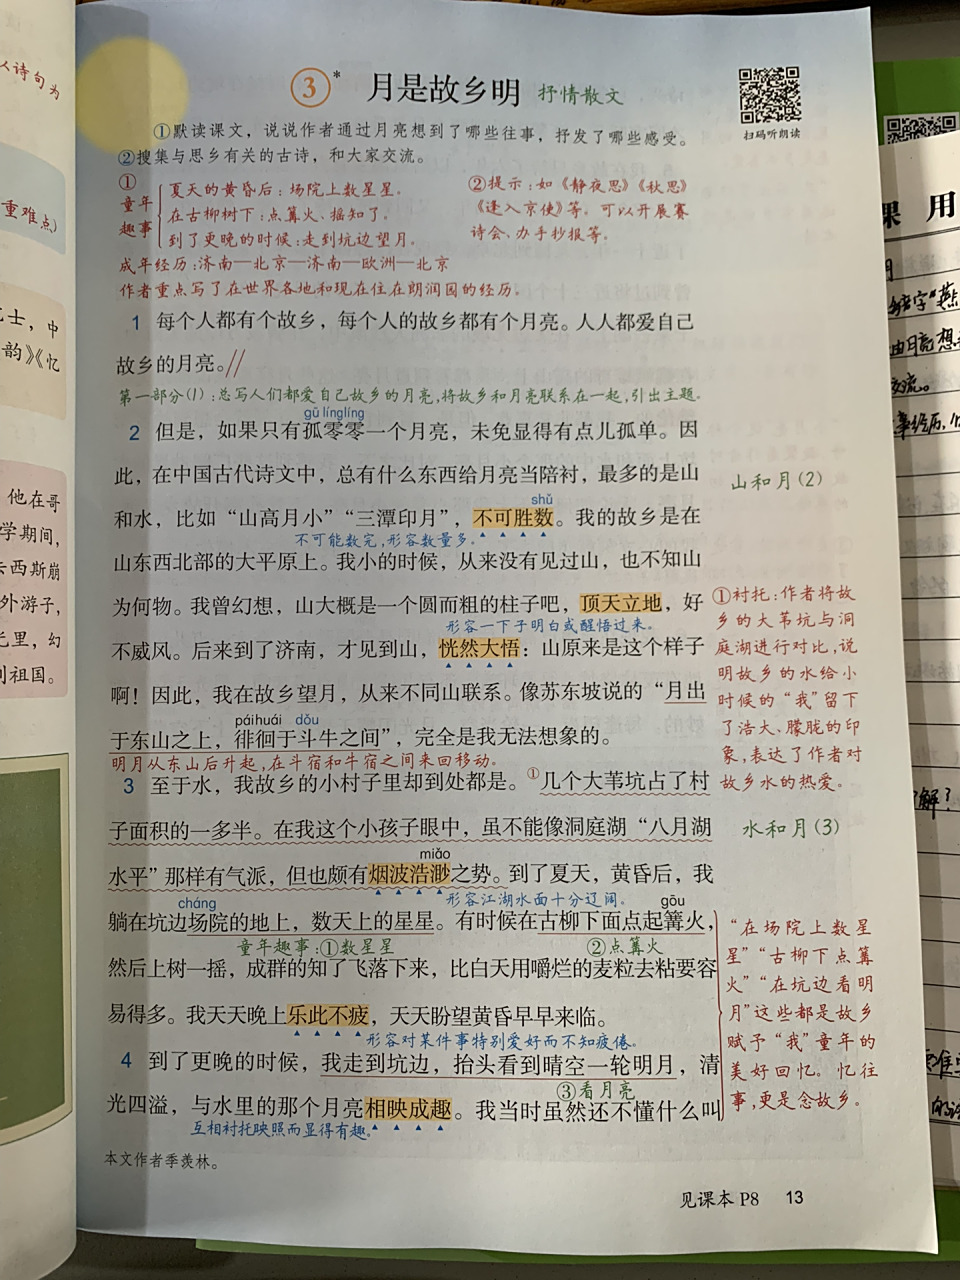 从诗句为
重难点)
士，中
韵》《忆
他在哥
学期间，
云西斯崩
外游子，
光里，幻
到祖国。
3* 月是故乡明 抒情散文
扫码听朗读
①默读课文，说说作者通过月亮想到了哪些往事，抒发了哪些感受。
②搜集与思乡有关的古诗，和大家交流。
①
童年
趣事
夏天的黄昏后：场院上数星星。
在古柳树下：点篝火、摇知了。
到了更晚的时候：走到坑边望月。
②提示：如《静夜思》《秋思》
《逢入京使》等。可以开展赛
诗会、办手抄报等。
成年经历：济南—北京—济南—欧洲—北京
作者重点写了在世界各地和现在住在朗润园的经历。
1 每个人都有个故乡，每个人的故乡都有个月亮。人人都爱自己
故乡的月亮。//
第一部分(1)：总写人们都爱自己故乡的月亮，将故乡和月亮联系在一起，引出主题。
gū línglíng
2 但是，如果只有孤零零一个月亮，未免显得有点儿孤单。因
此，在中国古代诗文中，总有什么东西给月亮当陪衬，最多的是山
山和月(2)
shǔ
和水，比如“山高月小”“三潭印月”，不可胜数。我的故乡是在
不可能数完，形容数量多。
山东西北部的大平原上。我小的时候，从来没有见过山，也不知山
为何物。我曾幻想，山大概是一个圆而粗的柱子吧，顶天立地，好
形容一下子明白或醒悟过来。
不威风。后来到了济南，才见到山，恍然大悟：山原来是这个样子
啊！因此，我在故乡望月，从来不同山联系。像苏东坡说的“月出
páihuái dǒu
于东山之上，徘徊于斗牛之间”，完全是我无法想象的。
明月从东山后升起，在斗宿和牛宿之间来回移动。
①衬托：作者将故
乡的大苇坑与洞
庭湖进行对比，说
明故乡的水给小
时候的“我”留下
了浩大、朦胧的印
象，表达了作者对
故乡水的热爱。
3 至于水，我故乡的小村子里却到处都是。①几个大苇坑占了村
子面积的一多半。在我这个小孩子眼中，虽不能像洞庭湖“八月湖
水和月(3)
miǎo
水平”那样有气派，但也颇有烟波浩渺之势。到了夏天，黄昏后，我
形容江湖水面十分辽阔。
cháng gōu
躺在坑边场院的地上，数天上的星星。有时候在古柳下面点起篝火，
童年趣事：①数星星 ②点篝火
然后上树一摇，成群的知了飞落下来，比白天用嚼烂的麦粒去粘要容
易得多。我天天晚上乐此不疲，天天盼望黄昏早早来临。
形容对某件事特别爱好而不知疲倦。
4 到了更晚的时候，我走到坑边，抬头看到晴空一轮明月，清
③看月亮
光四溢，与水里的那个月亮相映成趣。我当时虽然还不懂什么叫
互相衬托映照而显得有趣。
“在场院上数星
星”“古柳下点篝
火”“在坑边看明
月”这些都是故乡
赋予“我”童年的
美好回忆。忆往
事，更是念故乡。
本文作者季羡林。
见课本 P8 13
课 用
由月亮想
交流。